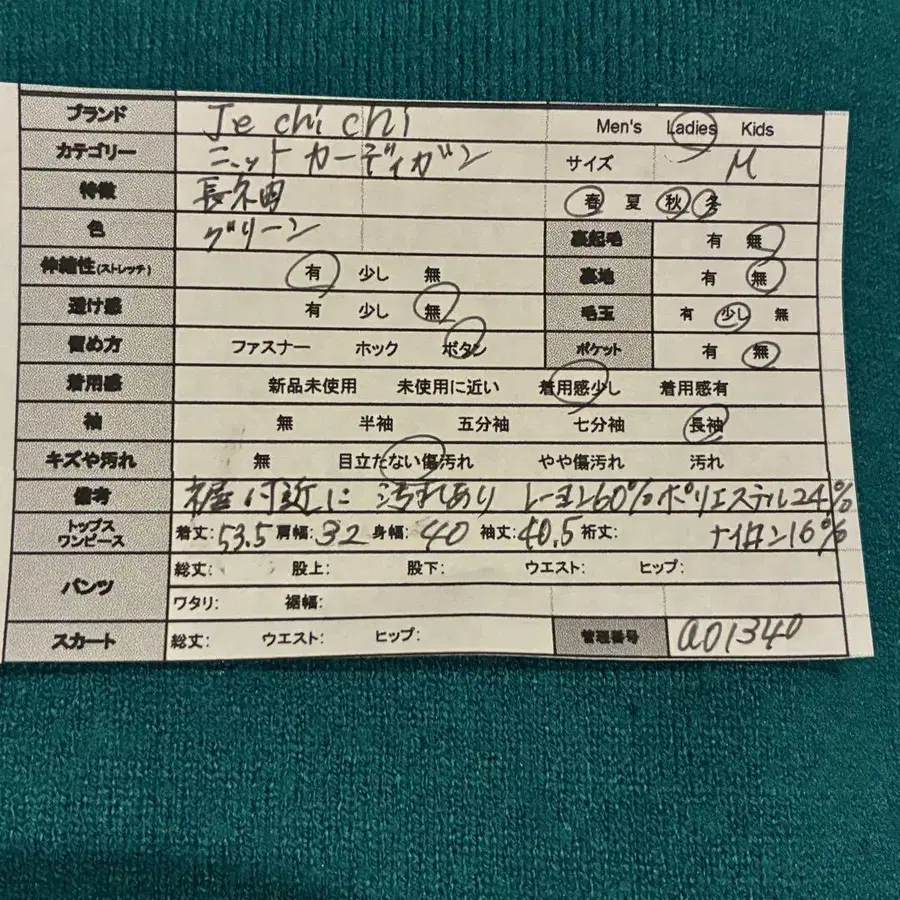 ブランド Je chi chi Men's Ladies Kids
カテゴリー ニットカーディガン サイズ M
特徴 長ネ由 春 夏 秋 冬
色 グリーン 裏起毛 有 無
伸縮性(ストレッチ) 有 少し 無 裏地 有 無
透け感 有 少し 無 毛玉 有 少し 無
留め方 ファスナー ホック ボタン ポケット 有 無
着用感 新品未使用 未使用に近い 着用感少し 着用感有
袖 無 半袖 五分袖 七分袖 長袖
キズや汚れ 無 目立たない傷汚れ やや傷汚れ 汚れ
備考 裾付近に 汚れあり レーヨン60%ポリエステル24%
トップス ワンピース 着丈:53.5 肩幅:32 身幅:40 袖丈:40.5 裄丈: ナイロン16%
パンツ 総丈: 股上: 股下: ウエスト: ヒップ:
ワタリ: 裾幅:
スカート 総丈: ウエスト: ヒップ: 管理番号 a01340